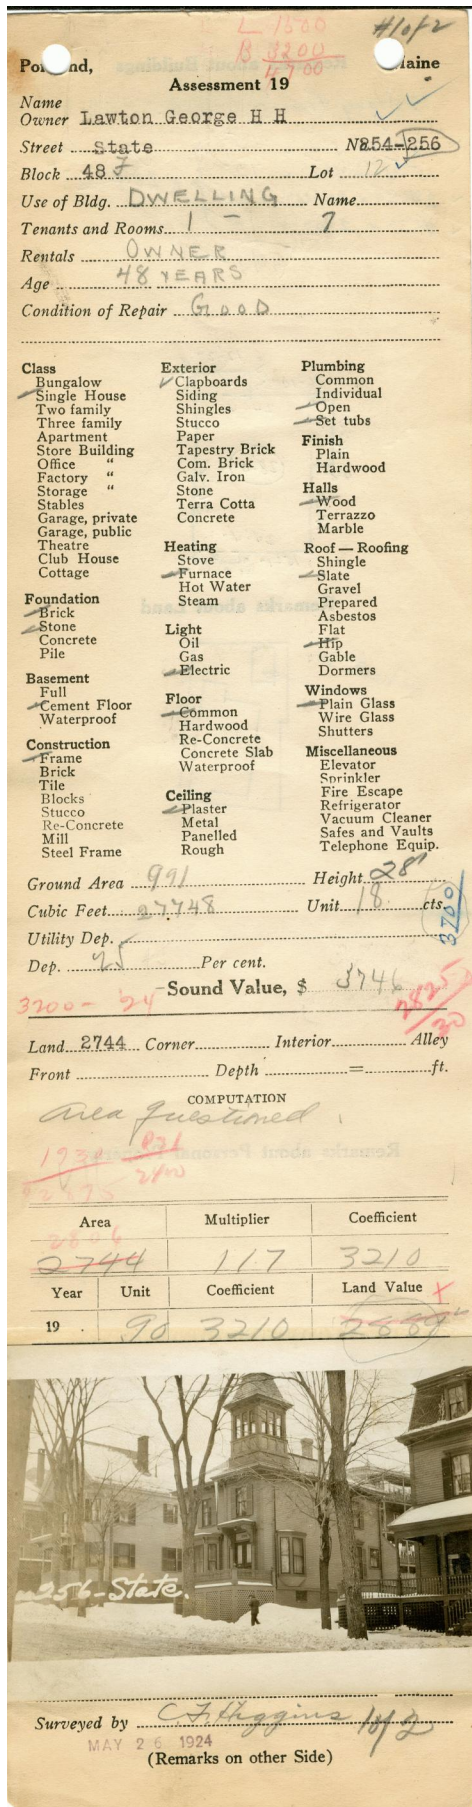 L 1500
B 3200
4700
#1 of 2
Portland, Maine
Assessment 19
Name
Owner Lawton George H H
Street State No 254-256
Block 48 F Lot 12
Use of Bldg. DWELLING Name
Tenants and Rooms 1 - 7
Rentals OWNER
Age 48 YEARS
Condition of Repair GOOD
Class
Bungalow
Single House
Two family
Three family
Apartment
Store Building
Office "
Factory "
Storage "
Stables
Garage, private
Garage, public
Theatre
Club House
Cottage
Foundation
Brick
Stone
Concrete
Pile
Basement
Full
Cement Floor
Waterproof
Construction
Frame
Brick
Tile
Blocks
Stucco
Re-Concrete
Mill
Steel Frame
Exterior
Clapboards
Siding
Shingles
Stucco
Paper
Tapestry Brick
Com. Brick
Galv. Iron
Stone
Terra Cotta
Concrete
Heating
Stove
Furnace
Hot Water
Steam
Light
Oil
Gas
Electric
Floor
Common
Hardwood
Re-Concrete
Concrete Slab
Waterproof
Ceiling
Plaster
Metal
Panelled
Rough
Plumbing
Common
Individual
Open
Set tubs
Finish
Plain
Hardwood
Halls
Wood
Terrazzo
Marble
Roof — Roofing
Shingle
Slate
Gravel
Prepared
Asbestos
Flat
Hip
Gable
Dormers
Windows
Plain Glass
Wire Glass
Shutters
Miscellaneous
Elevator
Sprinkler
Fire Escape
Refrigerator
Vacuum Cleaner
Safes and Vaults
Telephone Equip.
Ground Area 991 Height 28'
Cubic Feet 27748 Unit 18 cts.
3700
Utility Dep.
Dep. 25 Per cent.
Sound Value, $ 3746
3200 - '24
2825/30
Land 2744 Corner Interior Alley
Front Depth = ft.
COMPUTATION
Area questioned
Area Multiplier Coefficient
2806
2744 117 3210
Year Unit Coefficient Land Value
19 90 3210 2889
256-State.
Surveyed by C. F. Higgins 1 of 2
MAY 26 1924
(Remarks on other Side)